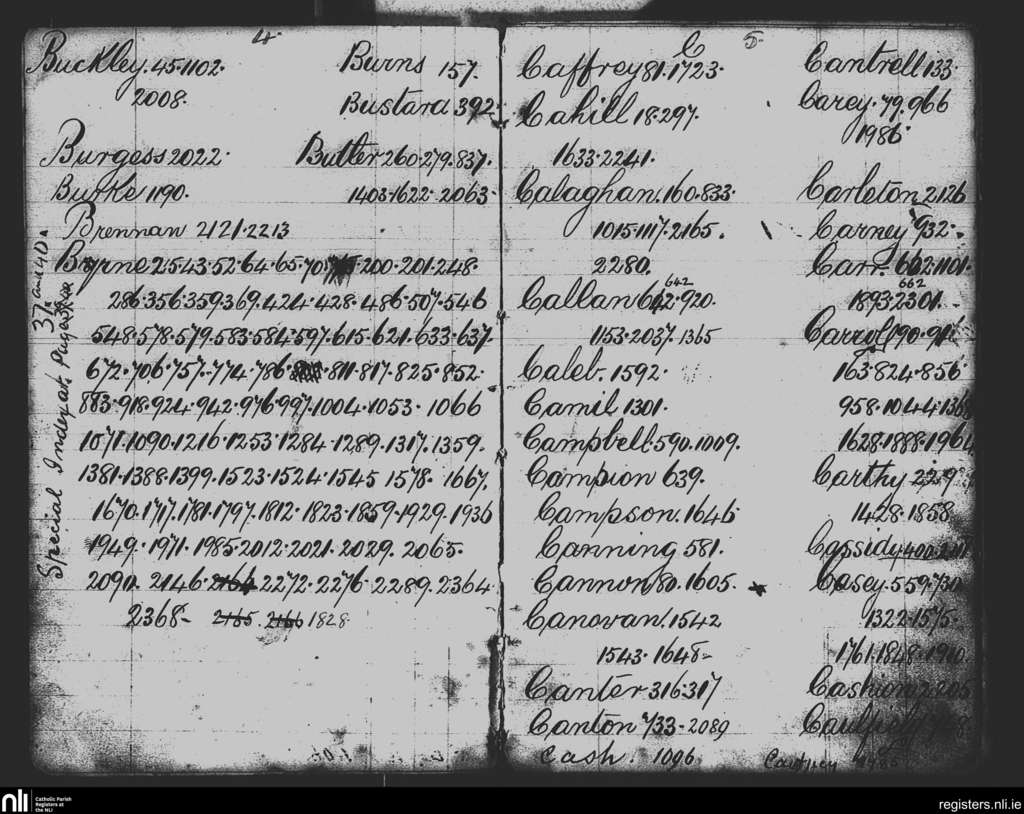 4
Buckley. 45.1102.
2008.
Burns 157.
Bustard 392.
Burgess 2022.
Butler 260.279.837.
Burke 1190.
1403.1622.2063.
Brennan 2121.2213
Byrne 25.43.52.64.65.70. 200.201.248.
286.356.359.369.424.428.486.507.546
548.578.579.583.584.597.615.621.633.637.
672.706.757.774.786. 811.817.825.852.
883.918.924.942.976.997.1004.1053.1066
1071.1090.1216.1253.1284.1289.1317.1359.
1381.1388.1399.1523.1524.1545 1578. 1667.
1670.1717.1781.1797.1812.1823.1859.1929.1936
1949.1971.1985.2012.2021.2029.2065.
2090. 2146. 2164 2272.2276.2289.2364
2368- 2165. 2166 1828
Special Index at Pages
37 and 40
C 5
Caffrey 81.1723.
Cahill 18.297.
1633.2241.
Calaghan. 160.833.
1015.1117.2165.
2280.
642
Callan 642.920.
1153.2037.1365
Caleb. 1592.
Camil 1301.
Campbell. 590.1009.
Campion 639.
Campson. 1646.
Canning 581.
Cannon 80.1605.
Canovan. 1542
1543.1648-
Canter 316.317
Canton 733-2089
Cash. 1096
Cantrell 133.
Carey. 79.966
1986.
Carleton 2126
Carney 932.
Carr. 662.1101.
662
1893.2301.
Carrol 190.
163.824.856
958.1044.
1628.1888.1964
Carthy
1428.1858
Cassidy 400.
Casey. 559.730
1322.1575.
1761.1848.1910.
Cashion
nli
Catholic Parish
Registers at
the NLI
registers.nli.ie